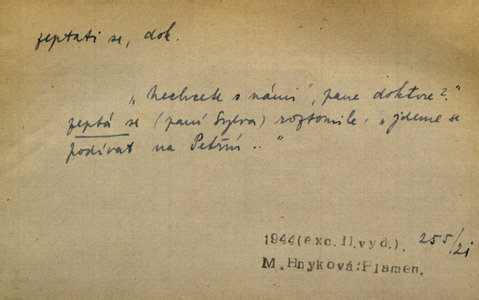 zeptati se, dok.
„Nechcete s námi", pane doktore?"
zeptá se (paní Sylva) roztomile, „jdeme se
podívat na Petřín.."
1944(exc.II.vyd.). 255/21
M.Hnyková:Plamen.